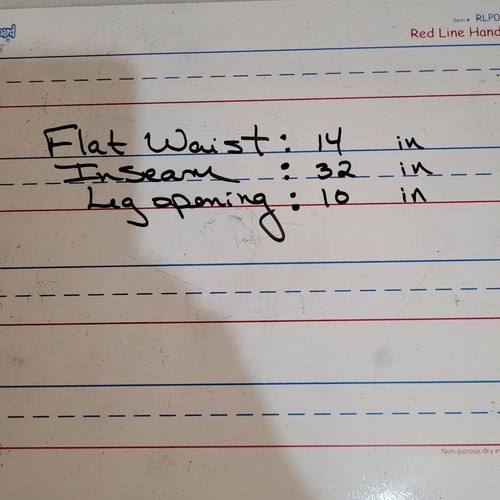 Item # RLPO
Red Line Hand
Flat Waist: 14 in
Inseam : 32 in
Leg opening: 10 in
Non-porous dry e